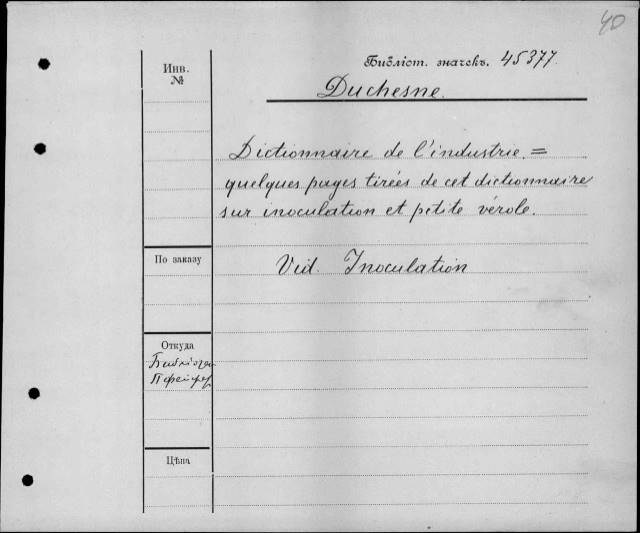 40
Библіот. значекъ. 45377.
Инв.
№
Duchesne.
Dictionnaire de l'industrie. =
quelques pages tirées de cet dictionnaire
sur inoculation et petite vérole.
По заказу
Vid. Inoculation
Откуда
Цѣна